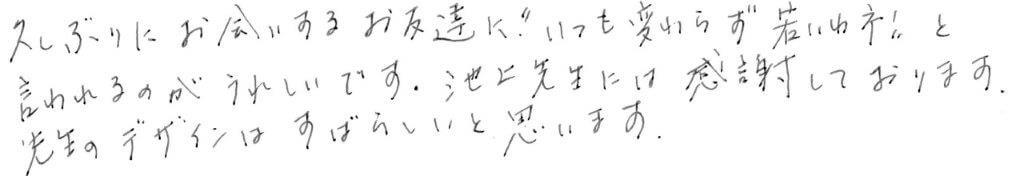 久しぶりにお会いするお友達に"いつも変わらず若いわネ"と
言われるのがうれしいです。池上先生には感謝しております。
先生のデザインはすばらしいと思います。